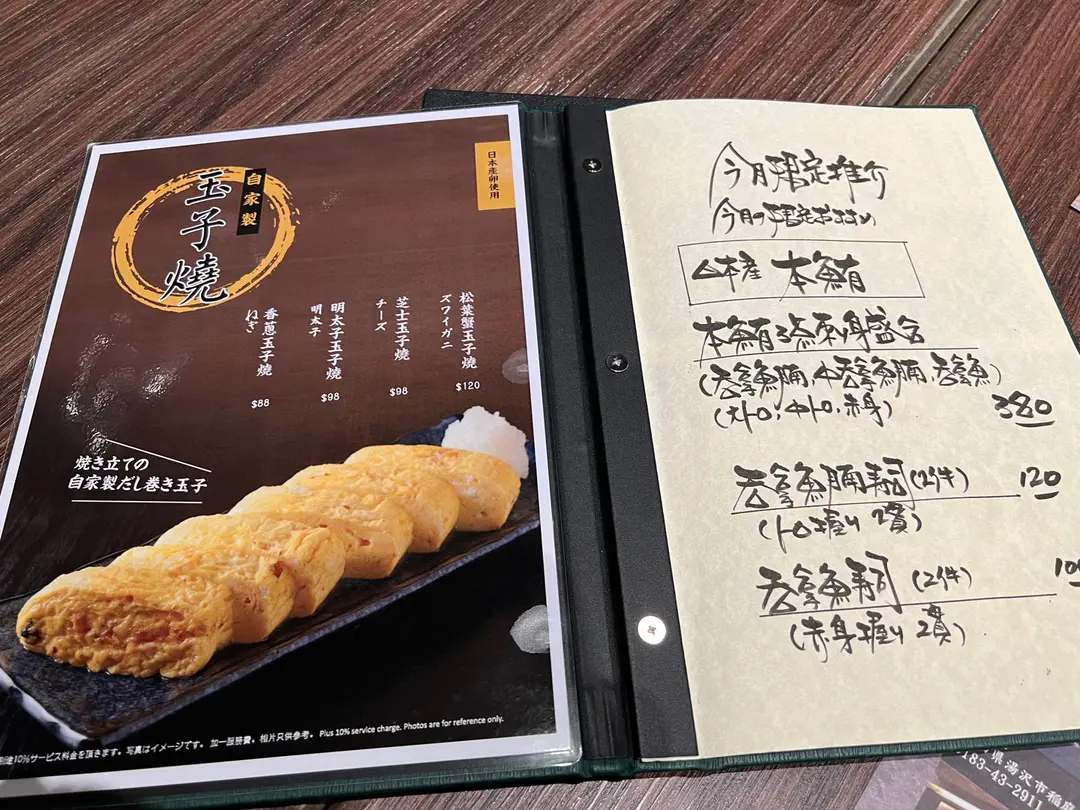 自家製
玉子燒
日本産卵使用
松葉蟹玉子燒
ズワイガニ
$120
芝士玉子燒
チーズ
$98
明太子玉子燒
明太子
$98
香蔥玉子燒
ねぎ
$88
焼き立ての
自家製だし巻き玉子
別途10%サービス料金を頂きます。写真はイメージです。 加一服務費。相片只供參考。 Plus 10% service charge. Photos are for reference only.
今月限定推介
今月の限定おすすめ
日本産 本鮪
本鮪3点刺身盛合
(吞拿魚腩,中吞拿魚腩,吞拿魚)
(大トロ,中トロ,赤身) 380
吞拿魚腩寿司(2件) 120
(トロ握り 2貫)
吞拿魚寿司 (2件)
(赤身握り 2貫)
県湯沢市稲
183-43-291